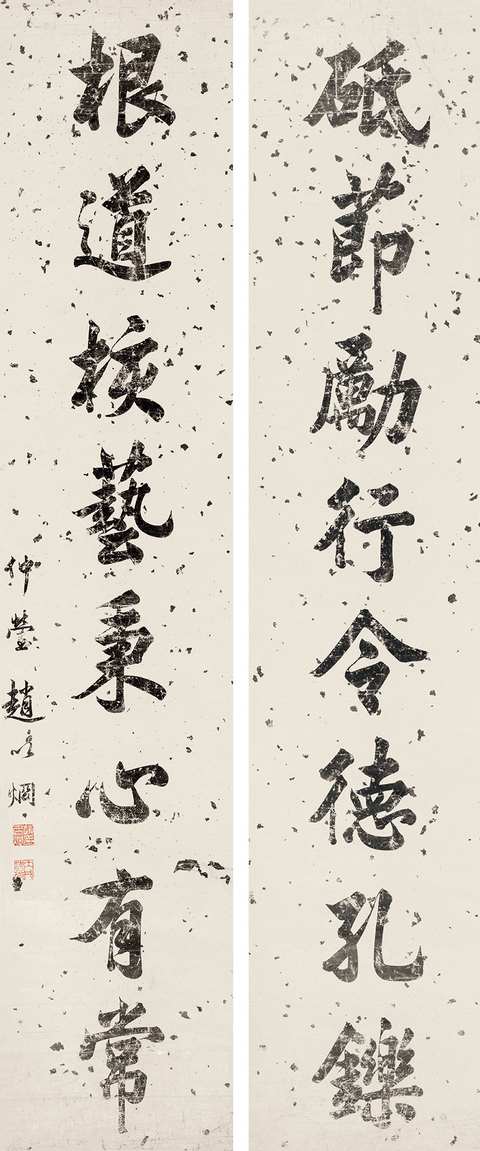 砥節勵行令德孔鑠
根道核藝秉心有常
仲瑩趙以烱